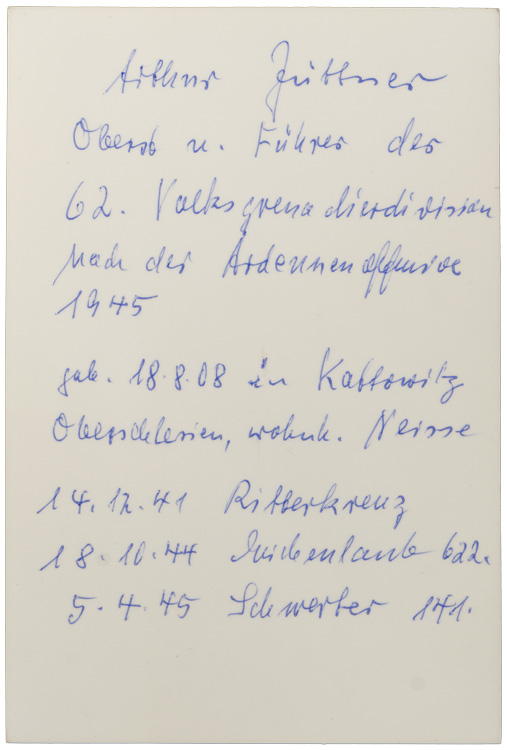 Arthur Jüttner
Oberst u. Führer der
62. Volksgrenadierdivision
nach der Ardennenoffensive
1945
geb. 18.8.08 in Kattowitz
Oberschlesien, wohnh. Neisse
14.12.41 Ritterkreuz
18.10.44 Eichenlaub 622.
5.4.45 Schwerter 141.